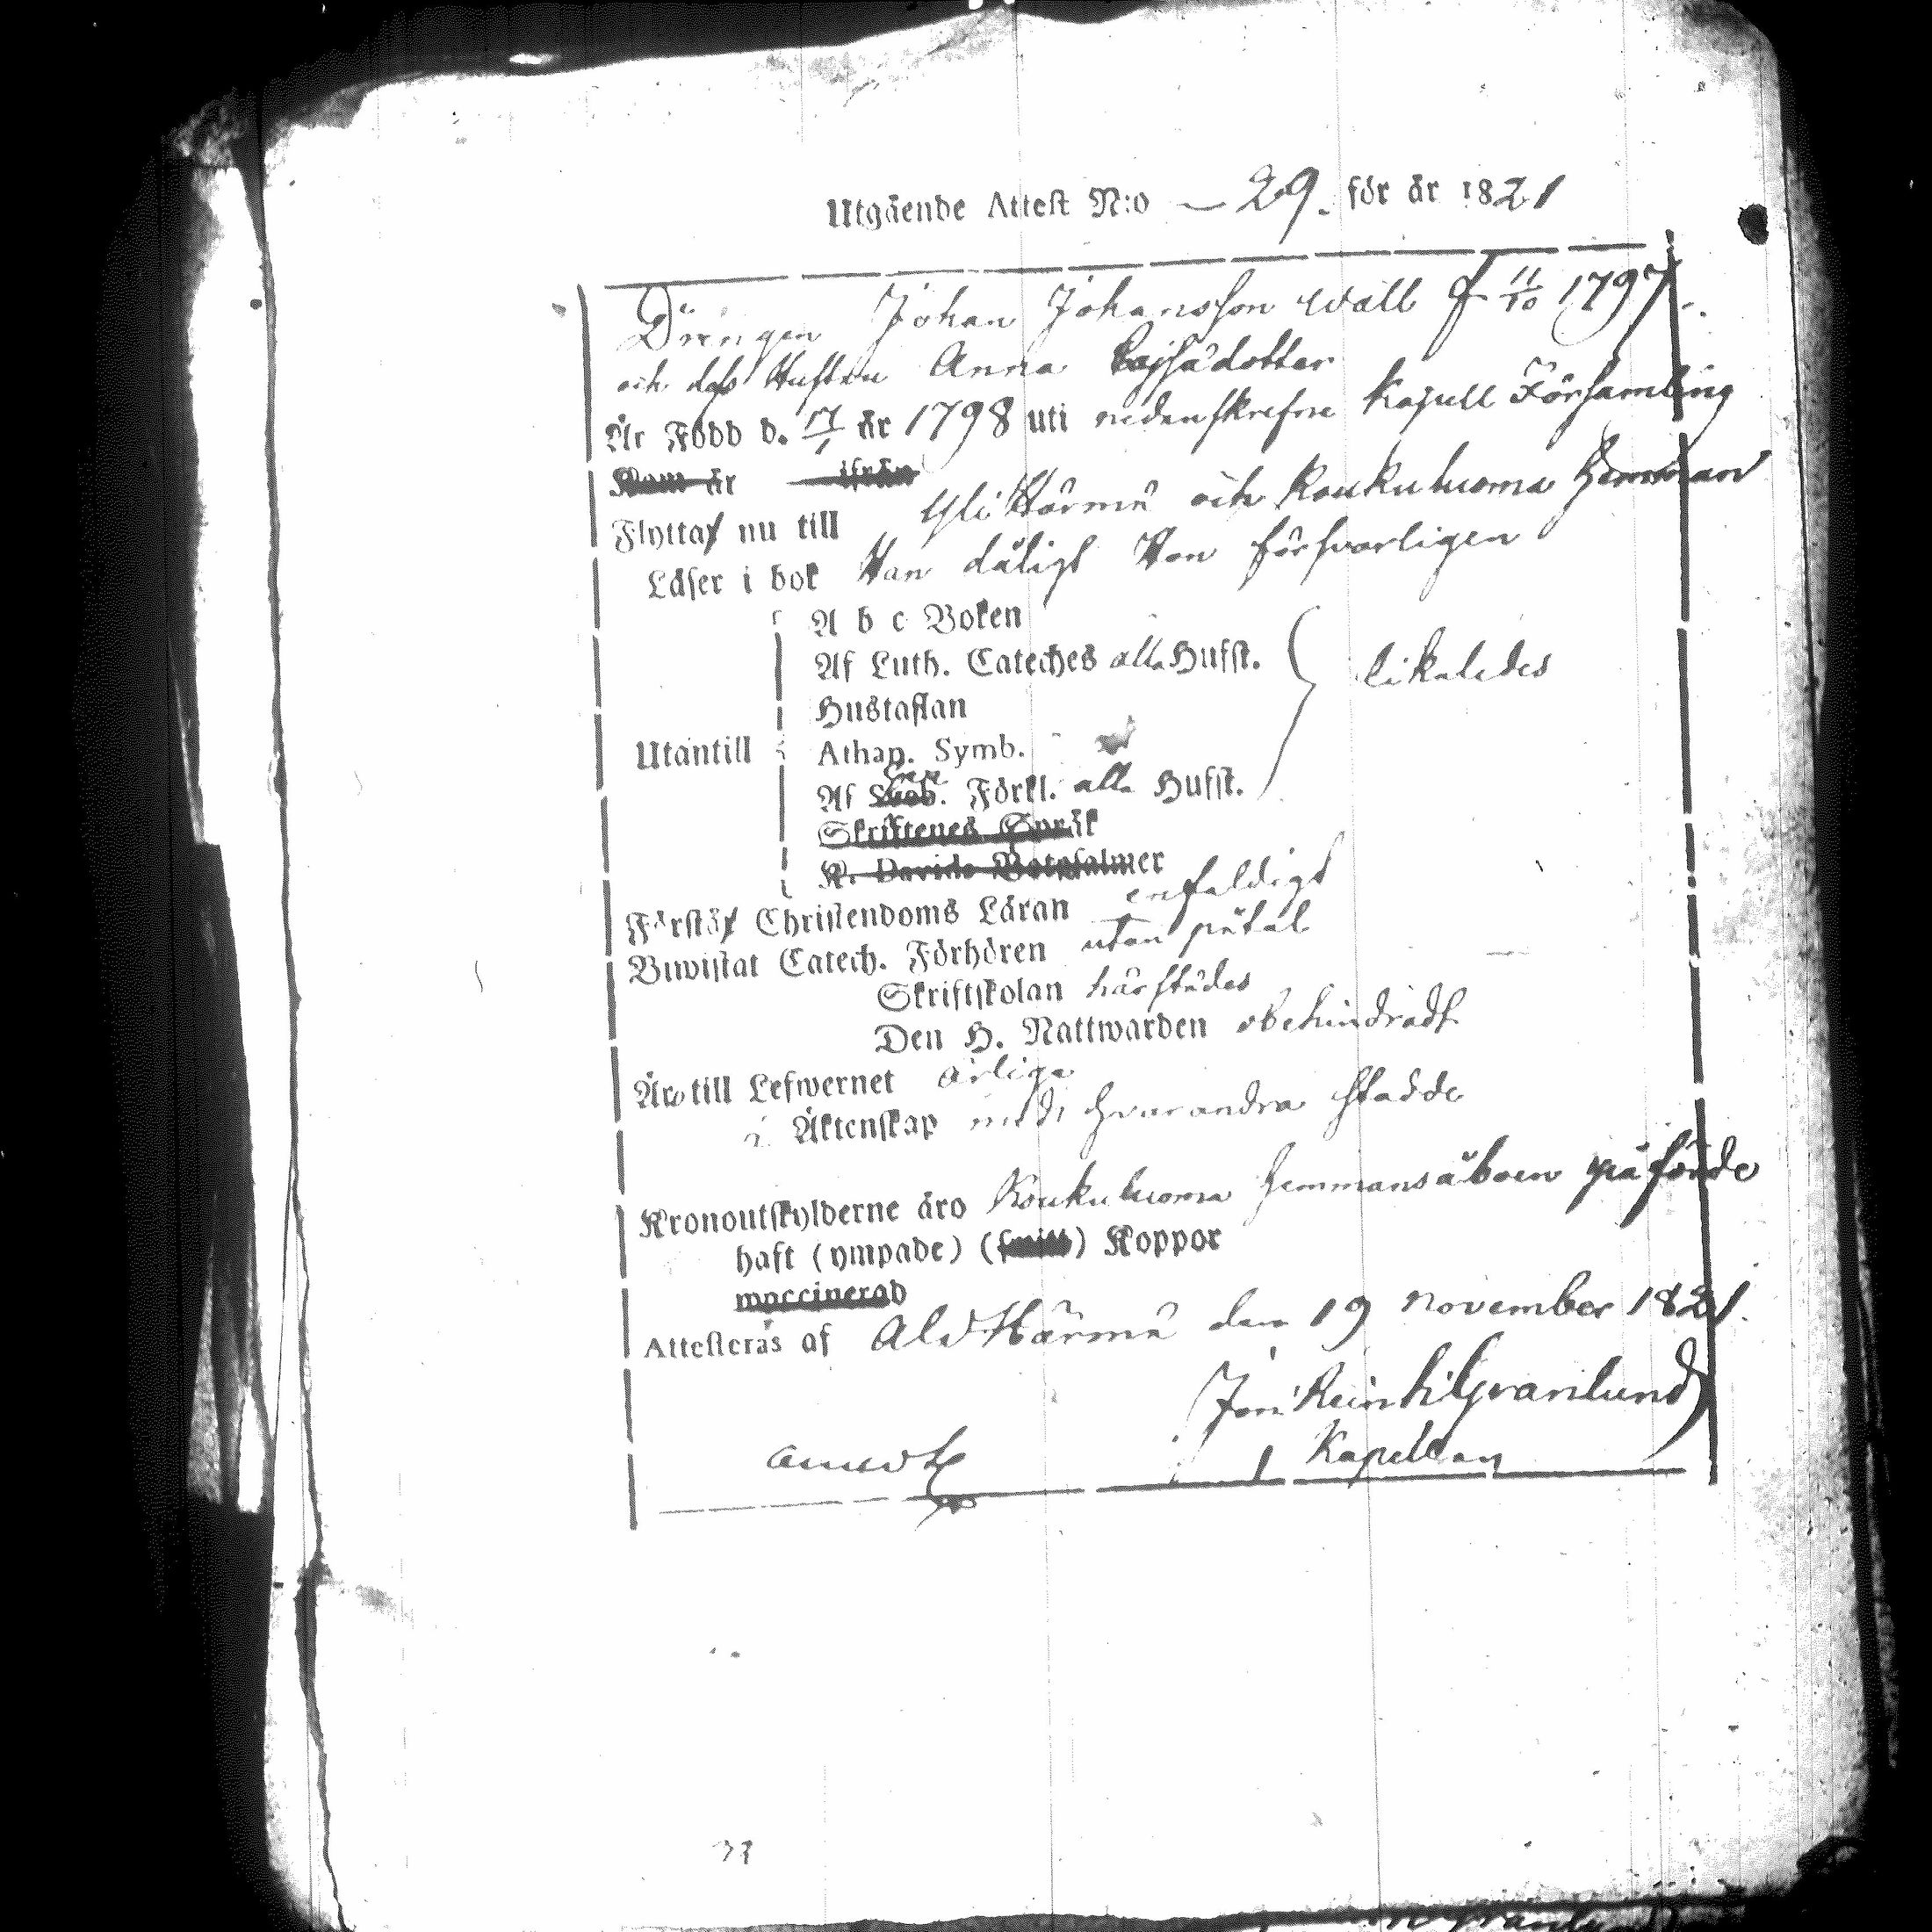 Utgående Attest N:o — 29. för år 1821
Drengen Johan Johansson Wäll f 11/10 1797.
och dess Hustru Anna Cajsadotter
Är Född d. 17/1 år 1798 uti nedanskrefne Kapell Församling
Kom år ifrån
Flytta nu till Yli Härmä och Koukuluoma Hemman
Läser i bok Han dåligt Hon försvarligen
A b c Boken
Af Luth. Cateches alla Hufst. likaledes
Hustaflan
Utantill Athan. Symb.
Af Förkl. alla Hufst.
Skriftenes Språk
K. Davids Botpsalmer
Förstå Christendoms Läran enfaldigt
Biwistat Catech. Förhören utan påtal
Skriftskolan härstädes
Den H. Nattwarden obehindradt
Äro till Lefwernet ärliga
i Äktenskap med hvarandra stadde
Kronoutskylderne äro Koukuluoma hemmansåboen påförde
haft (ympade) Koppor
waccinerad
Attesteras af Ala Härmä den 19 November 1821.
Joh: Reinh: Granlund
Kapellan